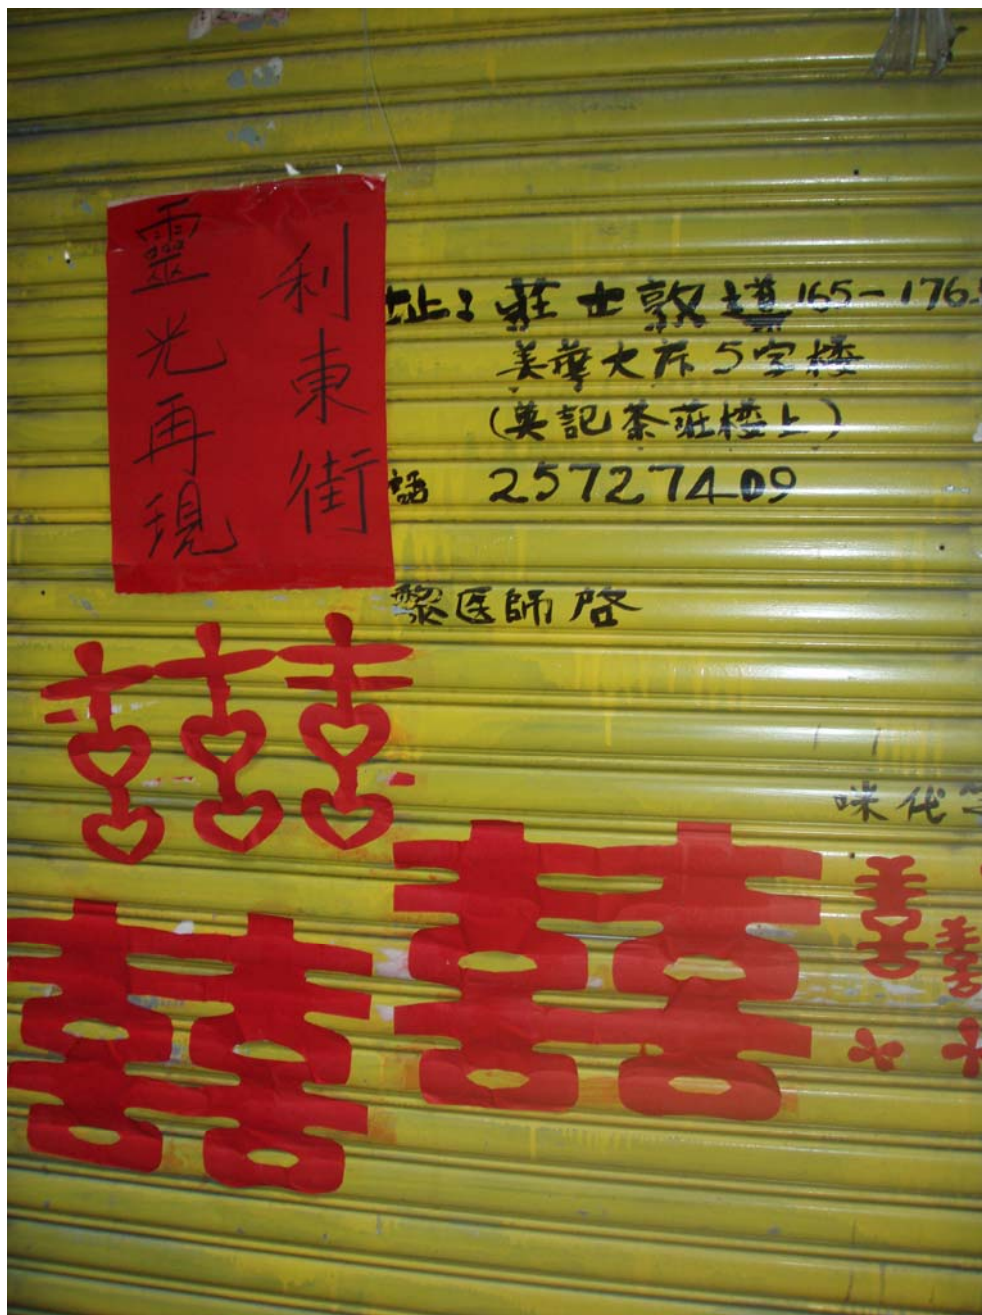 利東街
靈光再現
址：莊士敦道165-176
美華大厦5字楼
(英記茶莊楼上)
話 25727409
黎医師啓
咪代
囍
囍